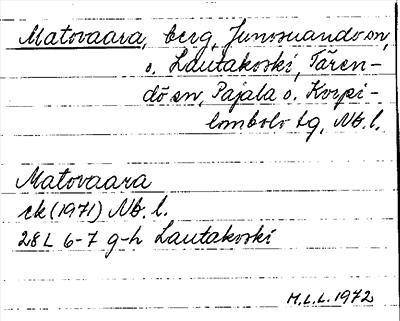 Matovaara, berg, Junosuando sn,
o. Lautakoski, Tären-
dö sn, Pajala o. Korpi-
lombolo tg, Nb. l.
Matovaara
ek (1971) Nb. l.
28 L 6-7 g-h Lautakoski
M.L.L. 1972